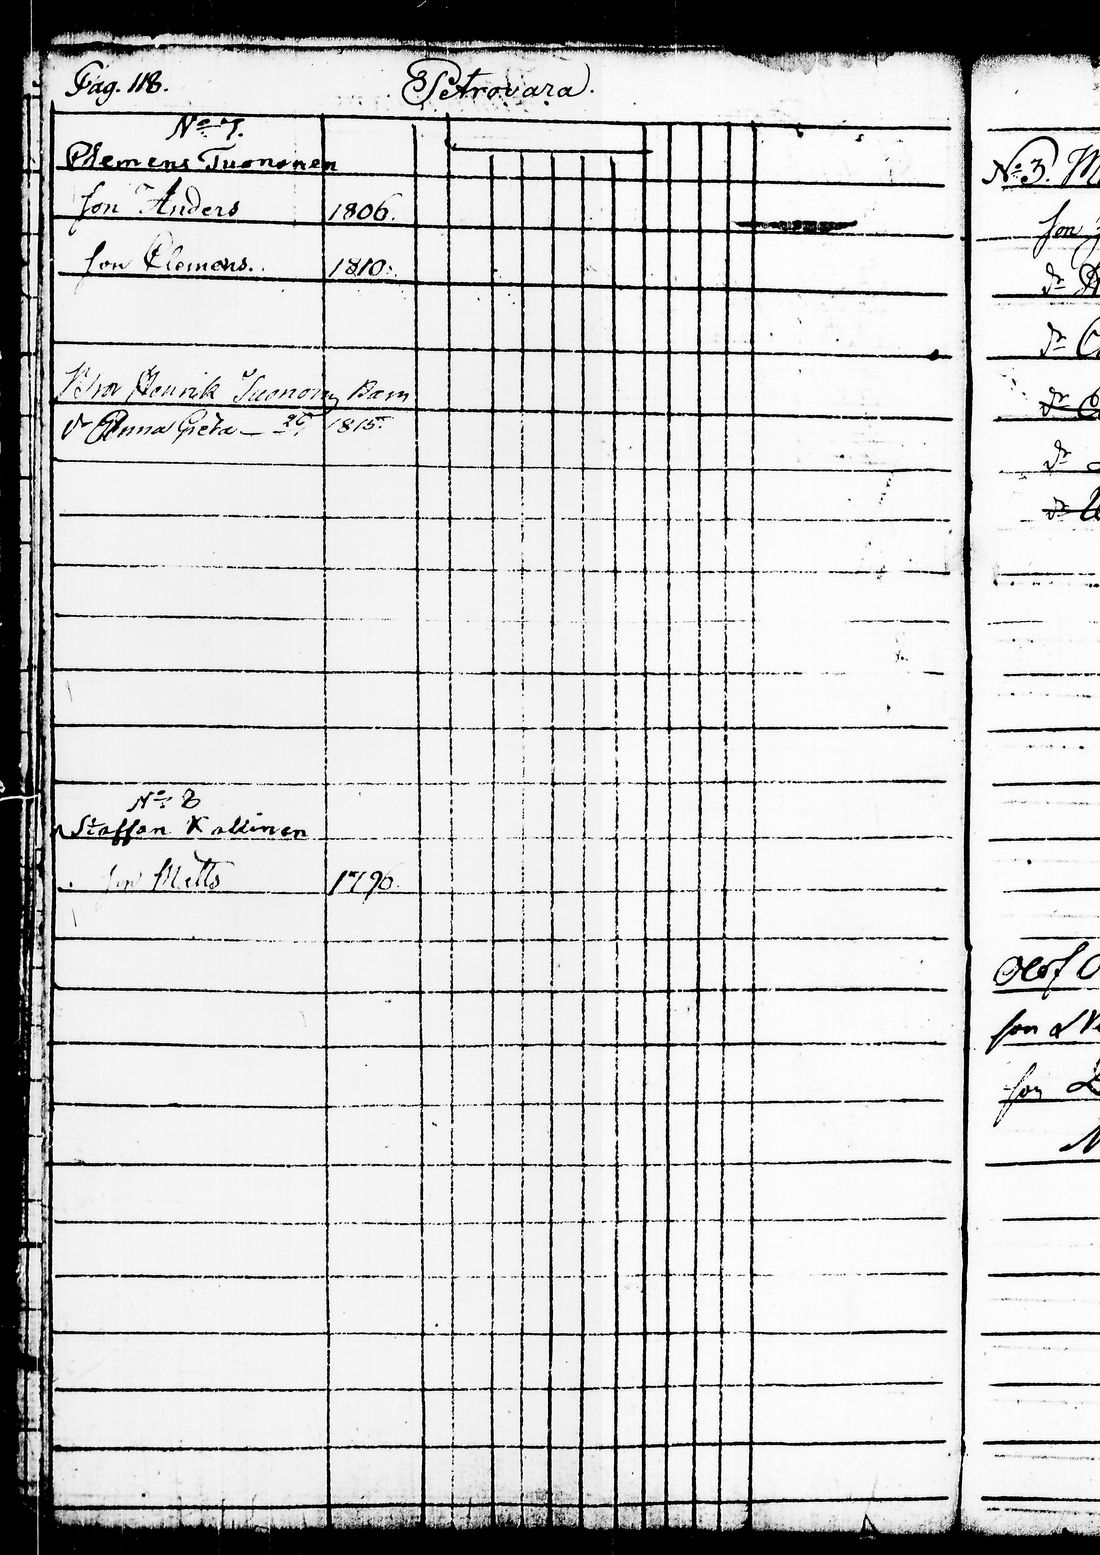 Pag. 118.
Petrovara.
No 7.
Clemens Tuononen
son Anders 1806.
son Clemens. 1810.
Bror Henrik Tuononens Barn
dr Anna Greta 1815.
No 8
Staffan Kallinen
son Matts 1790.
No 3.
son
dr
dr
dr
dr
dr
Olof
son
son